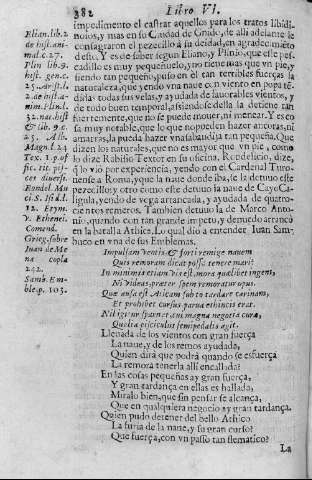 382 Libro VI.
impedimento el castrar aquellos para los tratos libidi-
nosos, y mas en su Caidad de Gnido, de alli adelante le
consagraron el pezecillo a su deidad, en agradecimiéto
desto. Y es de saber segun Eliano, y Plinio, que este pes-
cadillo es muy pequeñuelo, no tiene mas que vn pie, y
siendo tan pequeño, puso en èl tan terribles fuerças la
naturaleza, que yendo vna naue con viento en popa té-
didas todas sus velas, y ayudada de fauorables vientos, y
de todo buen temporal, asiendose della la detiene tan
fuertemente, que no se puede mouer, ni menear. Y es co
sa muy notable, que lo que no pueden hazer ancoras, ni
amarras, lo pueda hazer vna sabandija tan pequeña. Que
dizen los naturales, que no es mayor que vn pie, como
lo dize Rabisio Textor en su oficina. Rocdelicio, dize,
q̃ lo vio por experiencia, yendo con el Cardenal Turo-
nense a Roma, y que la naue donde iba, se la detuuo este
pezecillo y otro como este detuuo la naue de Cayo Ca-
ligula, yendo de vega arrancada, y ayudada de quatro-
cientos remeros. Tambien detuuo la de Marco Anto-
nio, quando con tan grande impetu, y denuedo arrancò
en la batalla Athica. Lo qual dio a entender Iuan Sam-
buco en vna de sus Emblemas.
Impulsam ventis, & forti remige nauem
Quis remoram dicat posse tenere mari?
In minimis etiam vis est, mora quælibet ingens,
Ni videas præter spem remoratur opus.
Quæ ausa est Aticam subito tardare carinam,
Et prohibet cursus parua echineis erat.
Nil igitur spernet animagna negotia curæ,
Quelia pisciculus semipedalis agit.
Lleuada de los vientos con gran fuerça
La naue, y de los remos ayudada,
Quien dirà que podrà quando se esfuerça
La remora tenerla alli encallada?
En las cosas pequeñas ay gran fuerça,
Y gran tardança en ellas es hallada,
Miralo bien, que sin pensar se alcança,
Que en qualquiera negocio ay gran tardança.
Quien pudo detener del bello Athico
La furia de la naue, y su gran curso?
Que fuerça, con vn passo tan flematico?
La
Elian. lib. 2
de hist. ani-
mal. c. 27.
Plin lib. 9.
hist. gen. c.
25. Arist. l.
2. de hist. a-
nim. Plin. l.
32. nat. hist
& lib. 9. c.
25. Alb.
Magn. l. 24
Tex. 1. p. of
fic. tit. pis-
ces diuersi.
Rondel. Mu
ci S. Isid. l.
12. Etym.
V. Echenei.
Comend.
Grieg. sobre
Iuan de Me
na copla
242.
Samb. Em-
ble. p. 103.